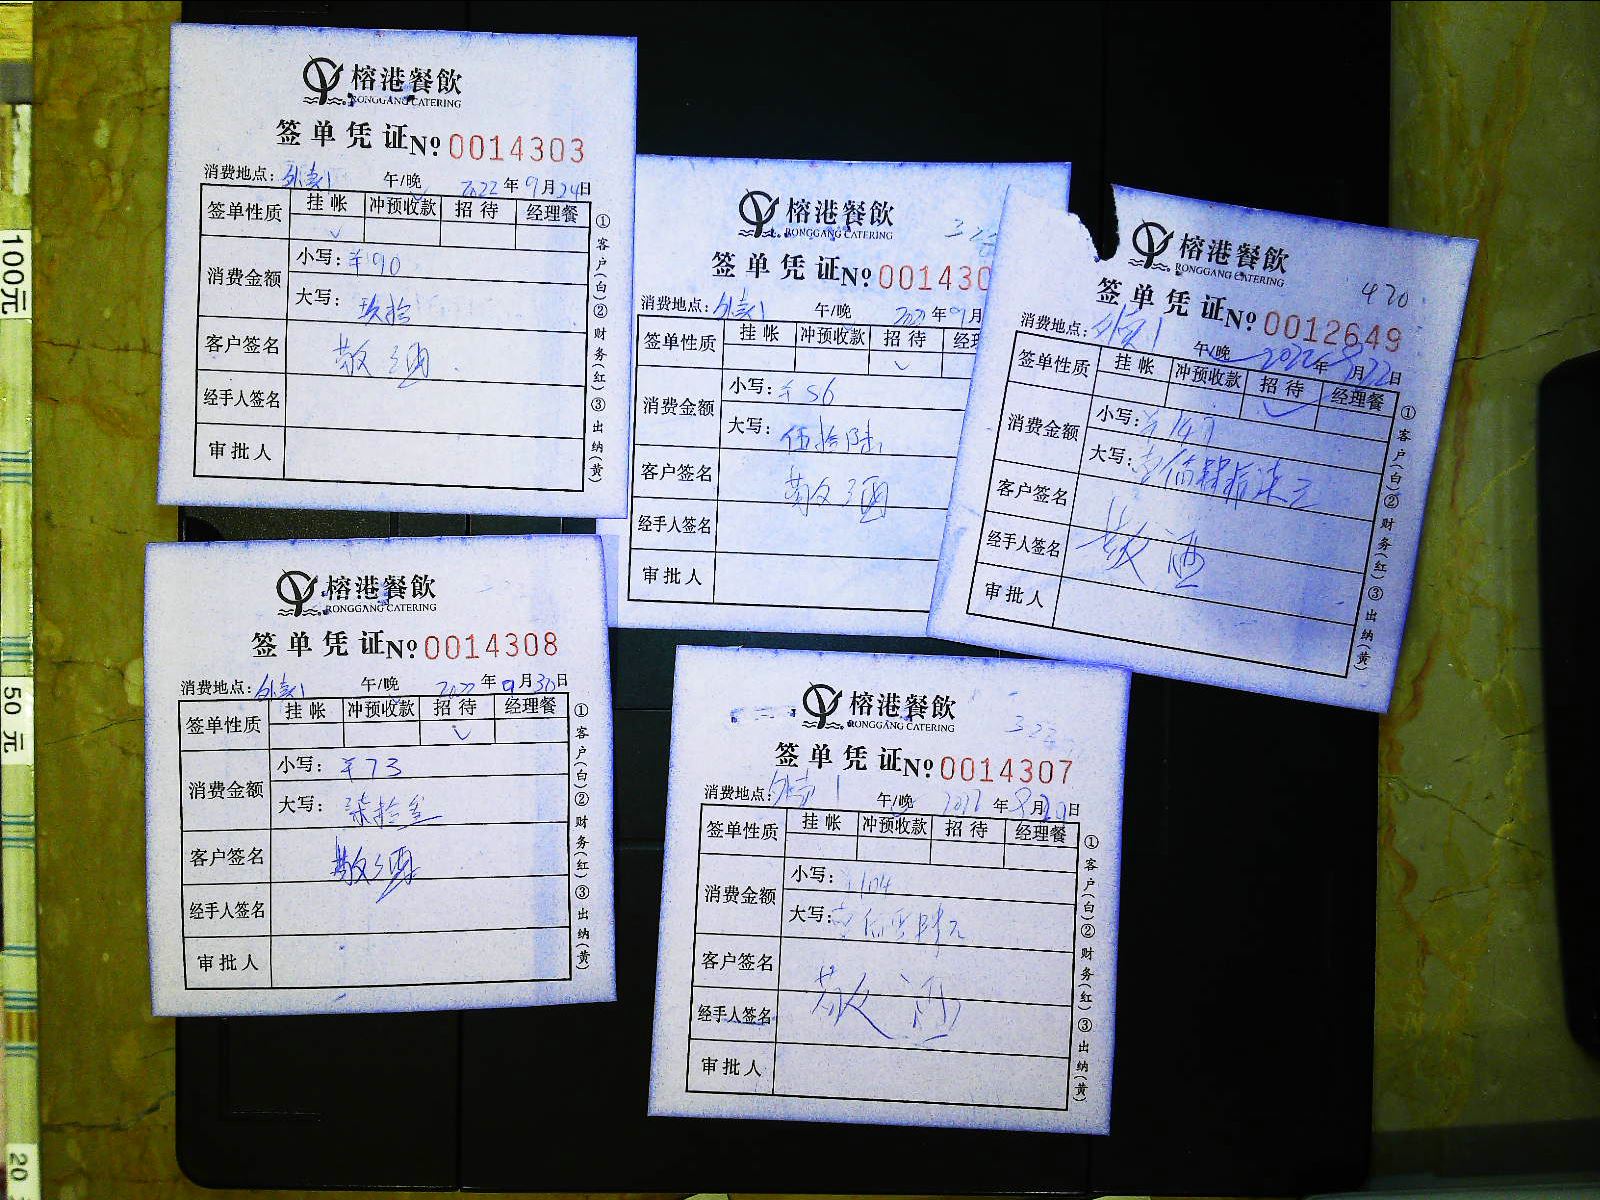 榕港餐飲
RONGGANG CATERING
签单凭证 № 0014303
消费地点: 午/晚 2022年9月24日
签单性质 挂帐 冲预收款 招待 经理餐
✓
消费金额 小写: ¥90
大写: 玖拾
客户签名
经手人签名
审批人
①客户(白)②财务(红)③出纳(黄)
榕港餐飲
RONGGANG CATERING
签单凭证 № 001430
消费地点: 午/晚 年9月
签单性质 挂帐 冲预收款 招待
✓
消费金额 小写: ¥56
大写: 伍拾陆
客户签名
经手人签名
审批人
榕港餐飲
RONGGANG CATERING
420
签单凭证 № 0012649
消费地点: 午/晚 2022年8月22日
签单性质 挂帐 冲预收款 招待 经理餐
✓
消费金额 小写: ¥147
大写: 壹佰肆拾柒元
客户签名
经手人签名
审批人
①客户(白)②财务(红)③出纳(黄)
榕港餐飲
RONGGANG CATERING
签单凭证 № 0014308
消费地点: 午/晚 2022年9月30日
签单性质 挂帐 冲预收款 招待 经理餐
✓
消费金额 小写: ¥73
大写: 柒拾叁
客户签名
经手人签名
审批人
①客户(白)②财务(红)③出纳(黄)
榕港餐飲
RONGGANG CATERING
签单凭证 № 0014307
消费地点: 午/晚 年8月 日
签单性质 挂帐 冲预收款 招待 经理餐
消费金额 小写:
大写:
客户签名
经手人签名
审批人
①客户(白)②财务(红)③出纳(黄)
100元
50元
20